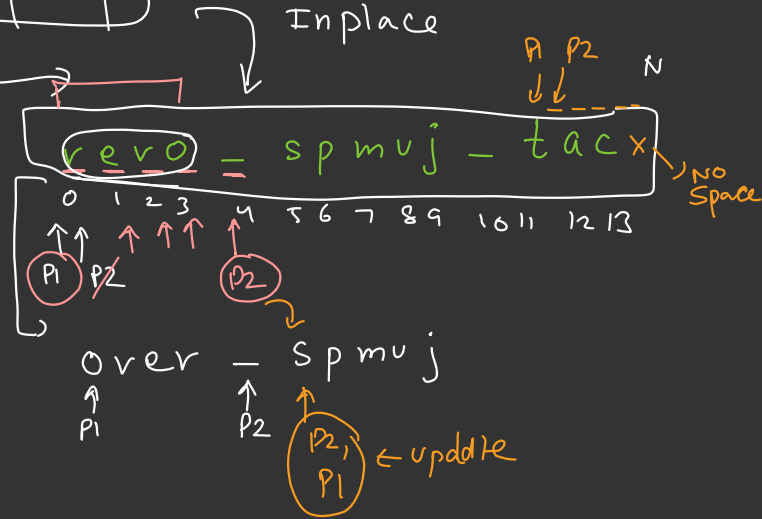 Inplace
P1 P2 N
r e v o _ s p m u j _ t a c x
NO
Space
0 1 2 3 4 5 6 7 8 9 10 11 12 13
P1 P2 P2
o v e r _ s p m u j
P1 P2
P2,
P1 ← update